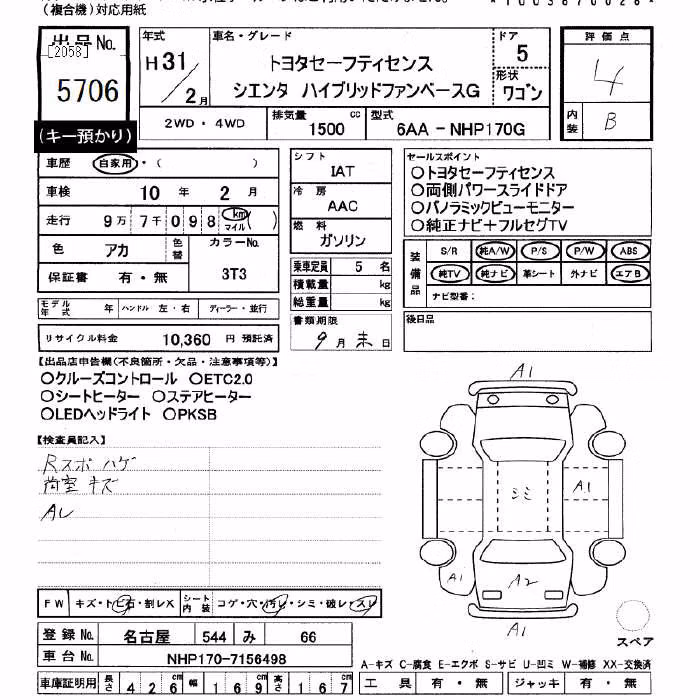 (複合機)対応用紙
出品 No.
[2058]
5706
(キー預かり)
年式
H 31 / 2 月
車名・グレード
トヨタセーフティセンス
シエンタ ハイブリッドファンベースG
ドア
5
形状
ワゴン
評価点
4
内装
B
2WD・4WD
排気量
1500 cc
型式
6AA - NHP170G
車歴 自家用・( )
車検 10 年 2 月
走行 9万 7千 0 9 8 km マイル ( )
色 アカ
色替
カラーNo.
3T3
保証書 有・無
シフト
IAT
冷房
AAC
燃料
ガソリン
乗車定員 5 名
積載量 kg
総重量 kg
書類期限
9月末日
セールスポイント
○トヨタセーフティセンス
○両側パワースライドドア
○パノラミックビューモニター
○純正ナビ+フルセグTV
装備品
S/R 純A/W P/S P/W ABS
純TV 純ナビ 革シート 外ナビ エアB
ナビ型番:
後日品
モデル年式 年 ハンドル 左・右 ディーラー・並行
リサイクル料金 10,360 円 預託済
【出品店申告欄(不良箇所・欠品・注意事項等)】
○クルーズコントロール ○ETC2.0
○シートヒーター ○ステアヒーター
○LEDヘッドライト ○PKSB
【検査員記入】
Rスポ ハゲ
荷室 キズ
AL
A1
シミ
A1
A1
A2
A1
スペア
FW キズ・トビ石・割レX
シート内装 コゲ・穴・汚レ・シミ・破レ・スレ
登録 No. 名古屋 544 み 66
車台 No. NHP170-7156498
車庫証明用 長さ 426 幅 169 高さ 167
cm
A-キズ C-腐食 E-エクボ S-サビ U-凹ミ W-補修 XX-交換済
工具 有・無 ジャッキ 有・無